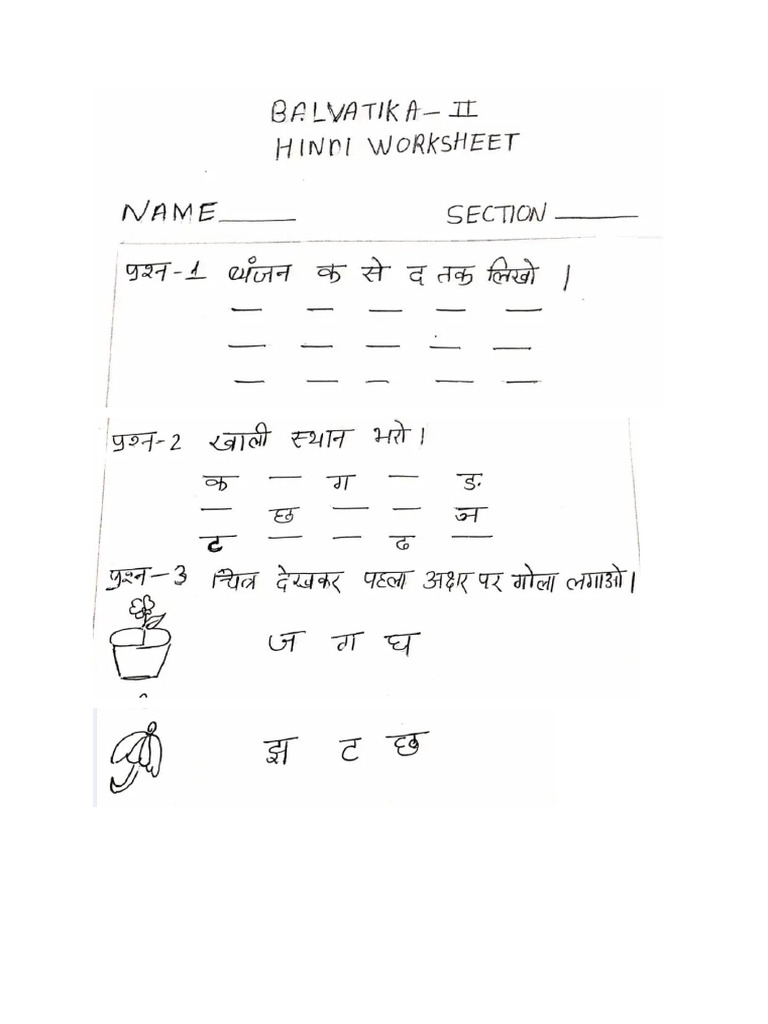 BALVATIKA - II
HINDI WORKSHEET
NAME_____ SECTION_____
प्रश्न-1 व्यंजन क से द तक लिखो ।
— — — — —
— — — — —
— — — — —
प्रश्न-2 खाली स्थान भरो।
क — ग — ङ
— छ — — ञ
ट — — ढ —
प्रश्न-3 चित्र देखकर पहला अक्षर पर गोला लगाओ।
ज ग घ
झ ट छ